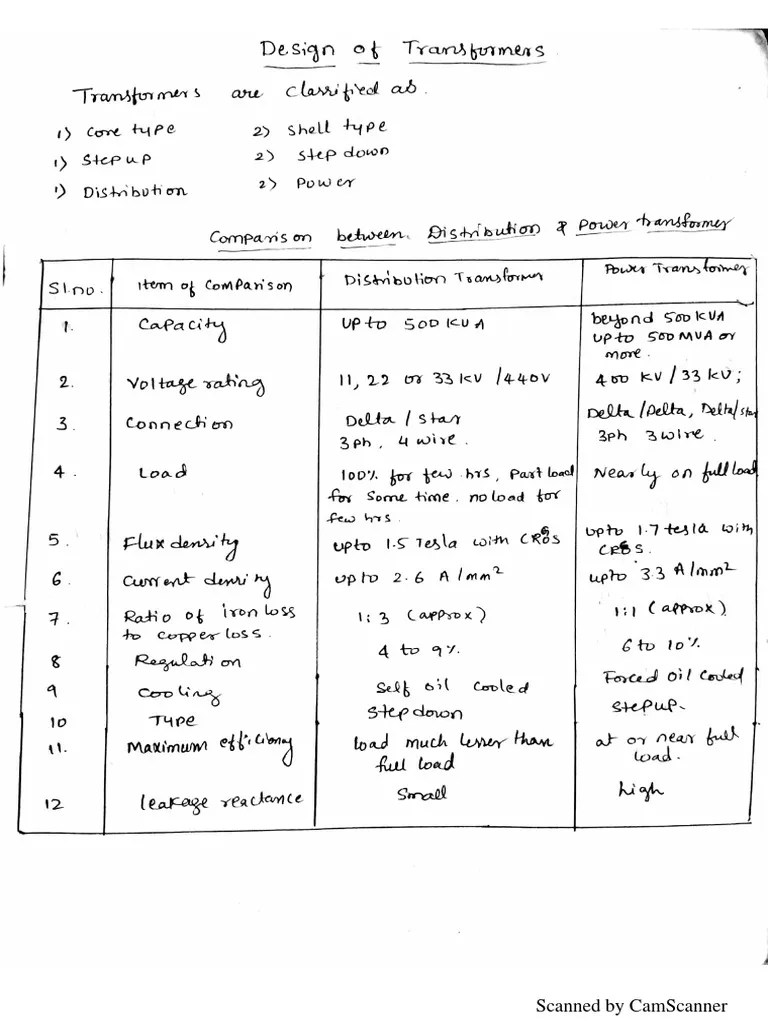 Design of Transformers
Transformers are classified as.
1) Core type 2) Shell type
1) Step up 2) Step down
1) Distribution 2) Power
Comparison between Distribution & Power transformer
Sl.no. Item of Comparison Distribution Transformer Power Transformer
1. Capacity UP to 500 KVA beyond 500 KVA
UP to 500 MVA or
more.
2. Voltage rating 11, 22 or 33 KV /440V 400 KV / 33 KV;
3. Connection Delta / Star Delta /Delta, Delta/Star
3Ph, 4 wire. 3Ph 3 wire.
4. Load 100% for few hrs, Part load Nearly on full load
for some time. no load for
few hrs.
5. Flux density upto 1.5 Tesla with CRGS upto 1.7 tesla with
CRGS.
6. Current density upto 2.6 A/mm² upto 3.3 A/mm²
7. Ratio of iron loss 1:3 (approx) 1:1 (approx)
to copper loss.
8 Regulation 4 to 9%. 6 to 10%.
9 Cooling Self oil cooled Forced Oil Cooled
10 Type Step down Step up.
11. Maximum efficiency load much lesser than at or near full
full load load.
12 leakage reactance Small high
Scanned by CamScanner